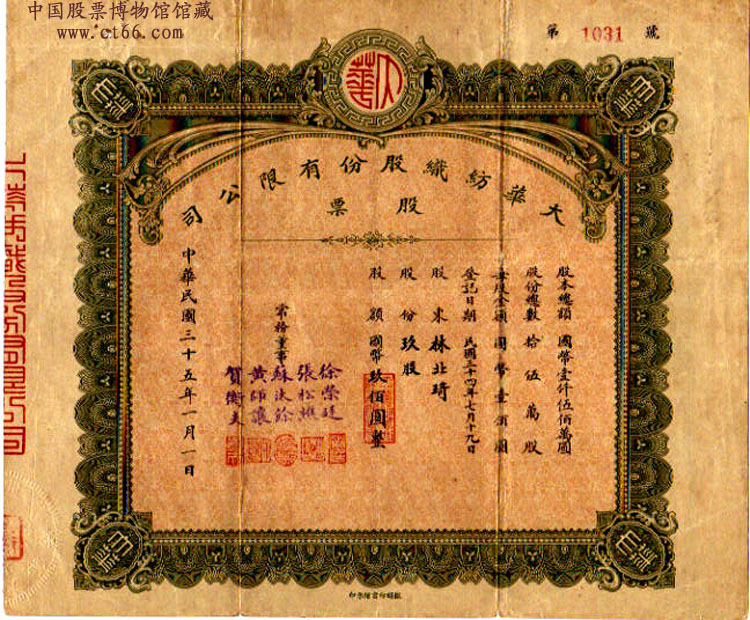 中国股票博物馆馆藏
www.ct66.com
第 1031 號
大華
大華紡織股份有限公司
股票
股本總額 國幣壹仟伍佰萬圓
股份總數 拾伍萬股
每股金額 國幣壹佰圓
登記日期 民國三十四年七月十九日
股東 林北琦
股份 玖股
股額 國幣玖佰圓整
常務董事
徐榮廷
張松樵
蘇汰餘
黃師讓
賀衡夫
中華民國三十五年一月一日